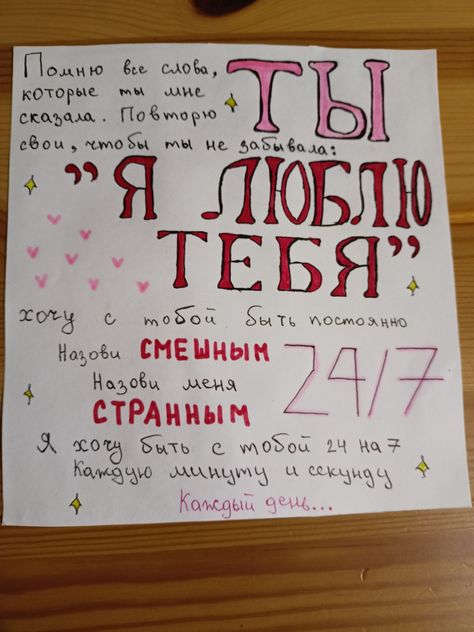 Помню все слова,
которые ты мне
сказала. Повторю
ТЫ
свои, чтобы ты не забывала:
"Я ЛЮБЛЮ
ТЕБЯ"
хочу с тобой быть постоянно
Назови СМЕШНЫМ
Назови меня
СТРАННЫМ
24/7
Я хочу быть с тобой 24 на 7
Каждую минуту и секунду
Каждый день...